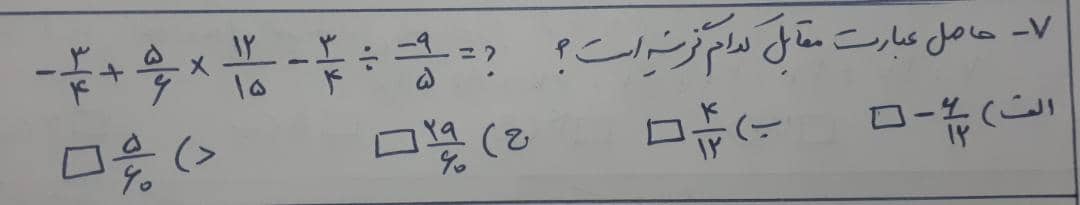 ۷- حاصل عبارت مقابل کدام گزینه است؟ -۳/۴ + ۵/۶ × ۱۲/۱۵ - ۳/۴ ÷ -۹/۵ = ?
الف) -۶/۱۲ □ ب) ۴/۱۲ □ ج) ۲۹/۶۰ □ د) ۵/۶۰ □